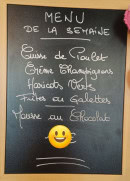 MENU
DE LA SEMAINE
Cuisse de Poulet
Crème Champignons
Haricots Verts
Frites ou Galettes
Mousse au Chocolat